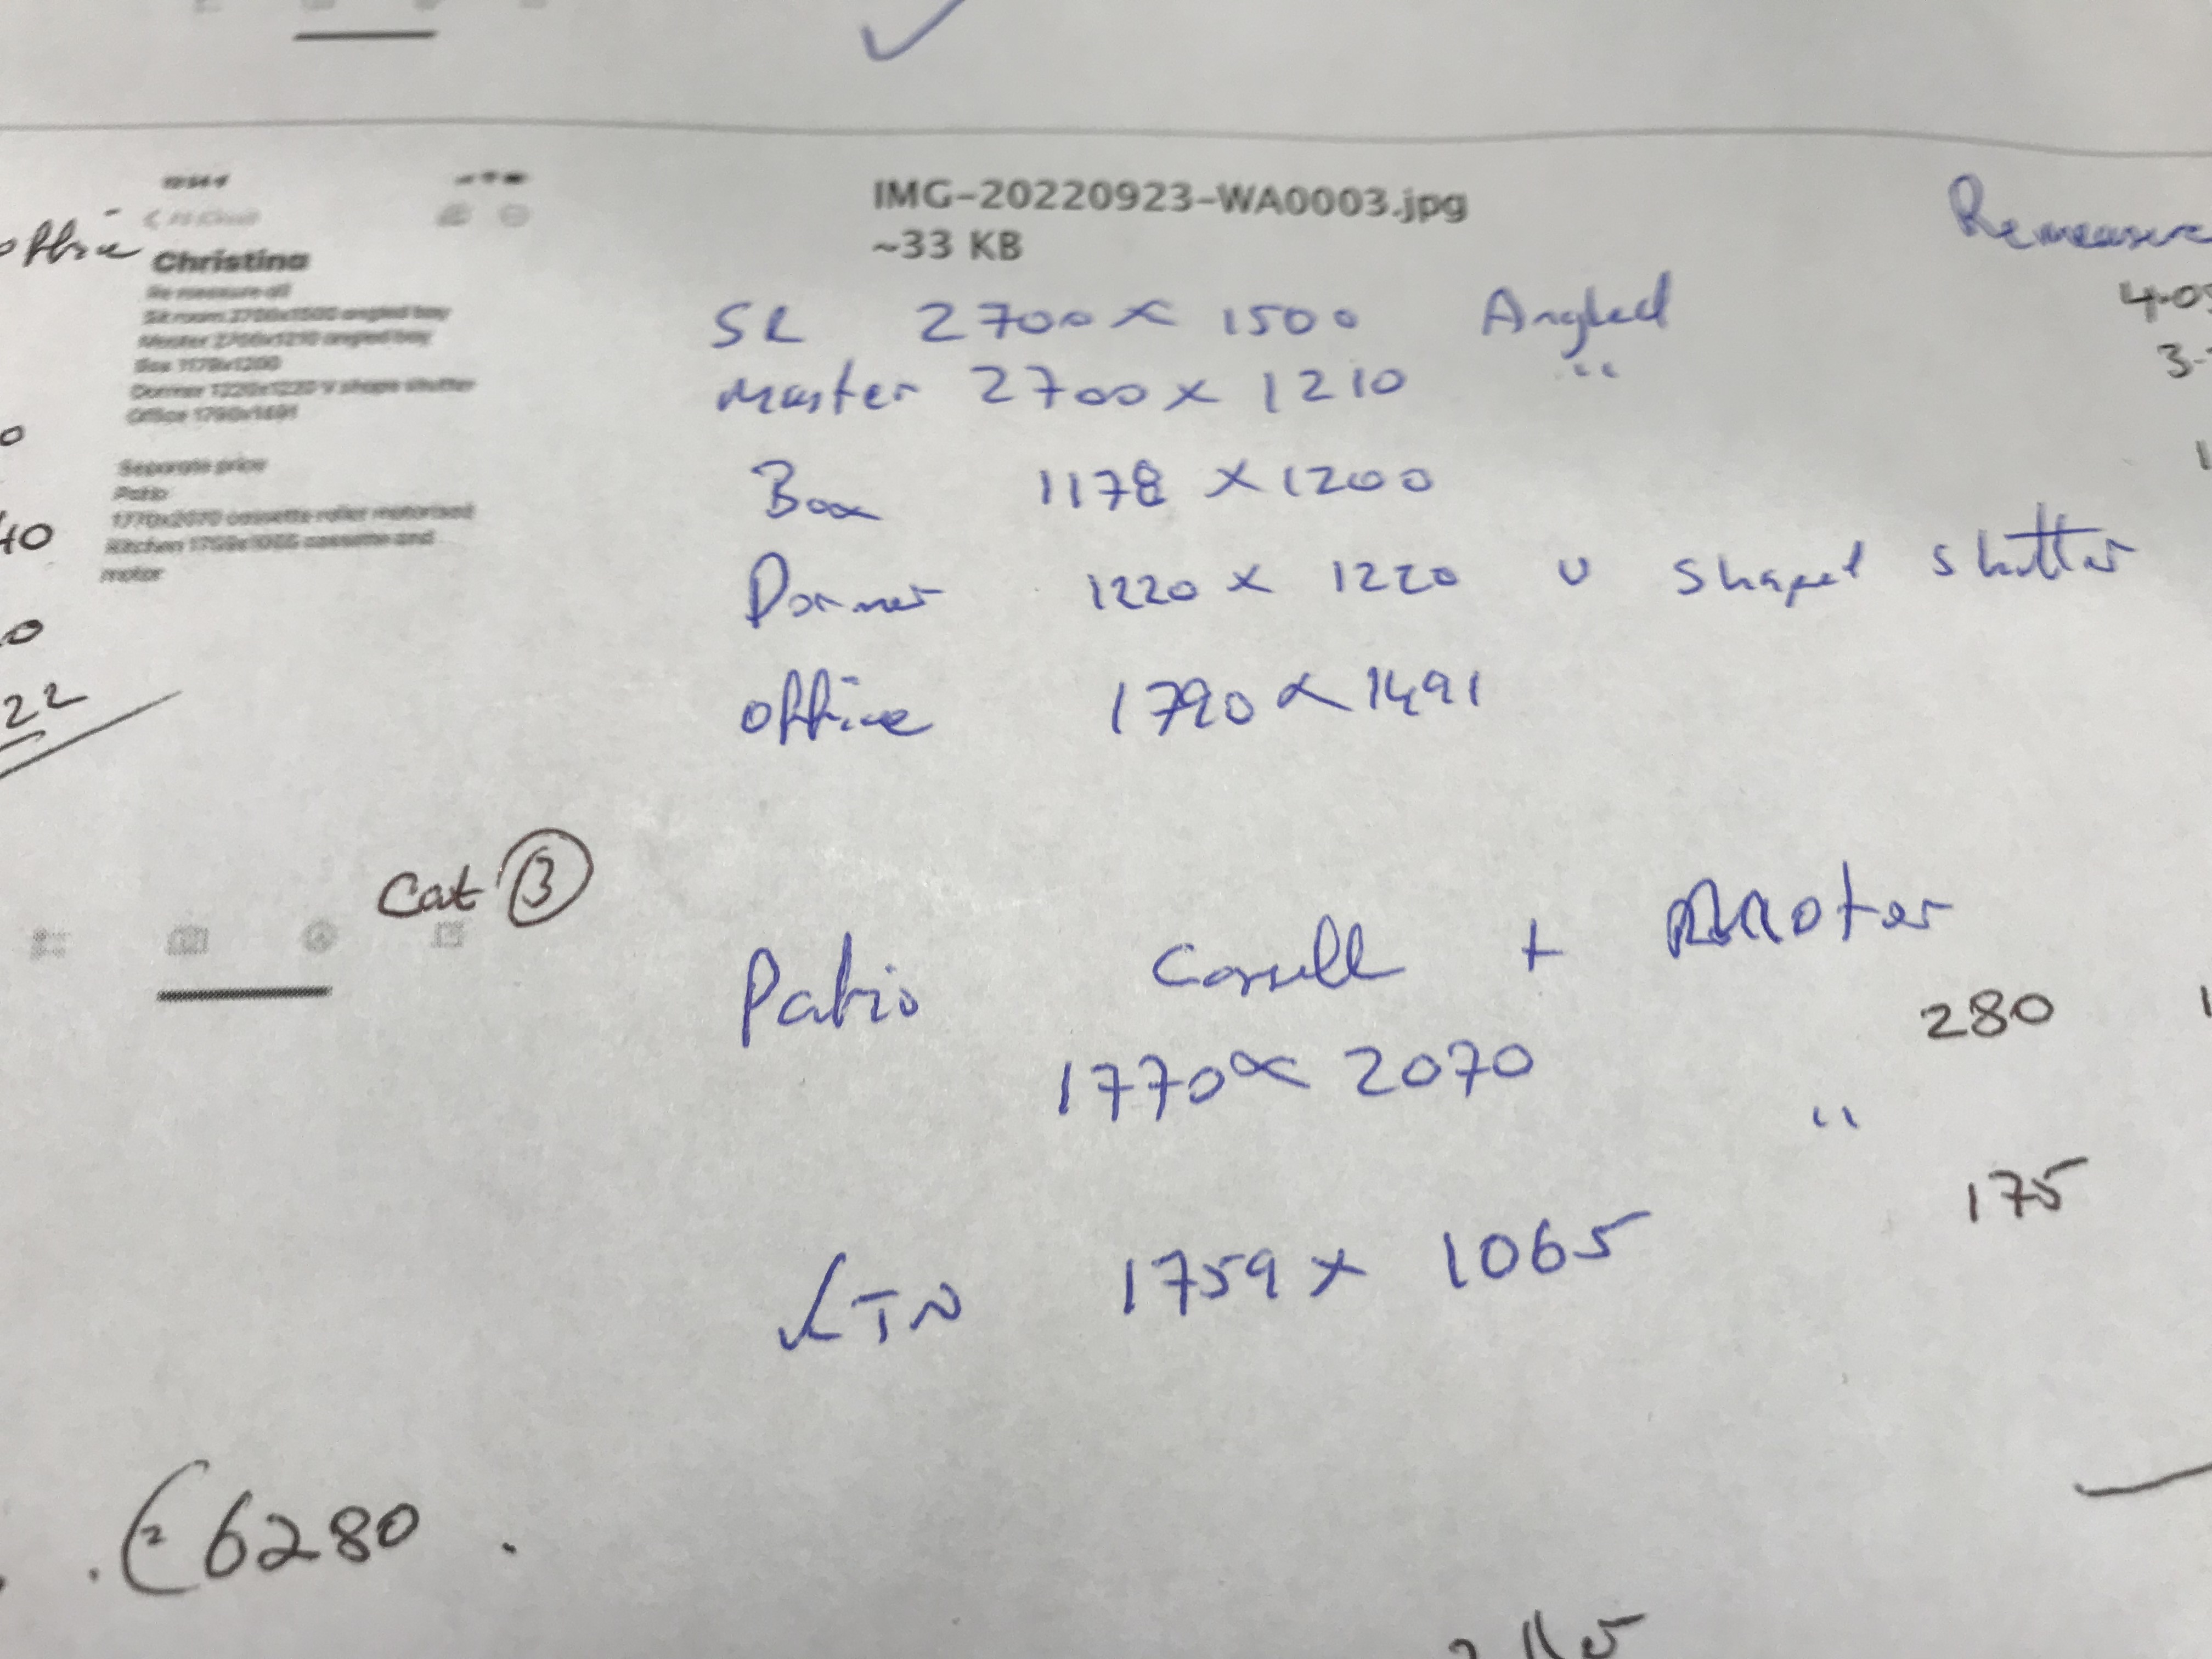 IMG-20220923-WA0003.jpg
~33 KB
Remeasure
office
Christina
Re measure all
Sit room 2700x1500 angled bay
Master 2700x1210 angled bay
Box 1178x1200
Dormer 1220x1220 V shape shutter
Office 1790x1491
Separate price
Patio
1770x2070 cassette roller motorised
Kitchen 1759x1065 cassette and
motor
SR 2700 x 1500 Angled
4.05
Master 2700 x 1210 "
3.
Box 1178 x 1200
1
40
Dormer 1220 x 1220 V Shaped Shutter
0
22
office 1790 x 1491
Cat 3
Patio + Motor
280
1770 x 2070
"
175
KTN 1759 x 1065
€6280.